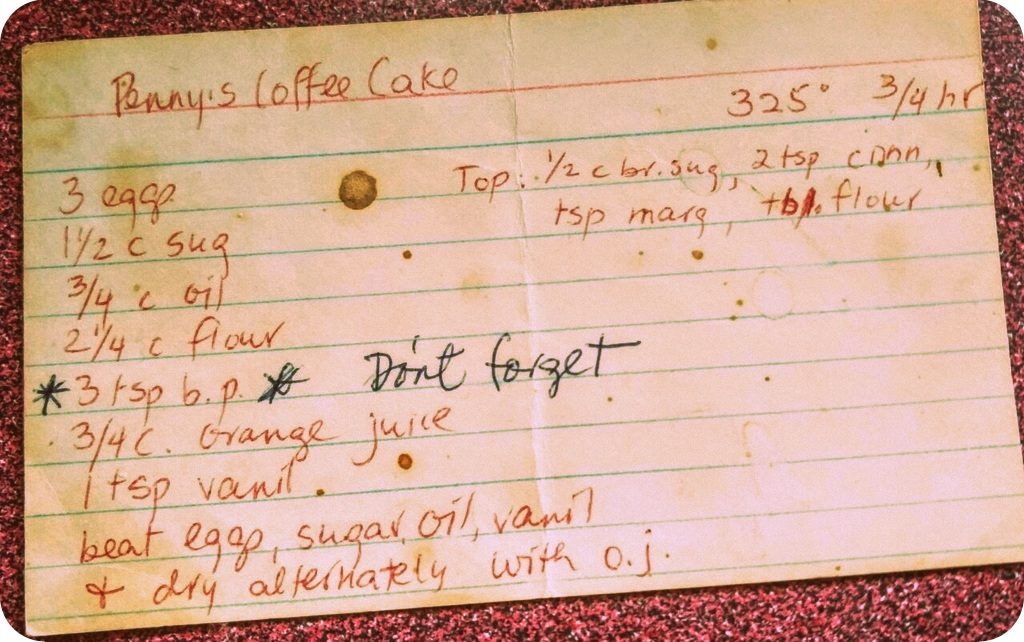 Penny's Coffee Cake
325° 3/4 hr
Top: 1/2 c br. sug, 2 tsp cinn,
tsp marg, tbl. flour
3 eggs
1 1/2 c sug
3/4 c oil
2 1/4 c flour
* 3 tsp b.p. * Don't forget
3/4 c. orange juice
1 tsp vanil
beat eggs, sugar, oil, vanil
+ dry alternately with o.j.